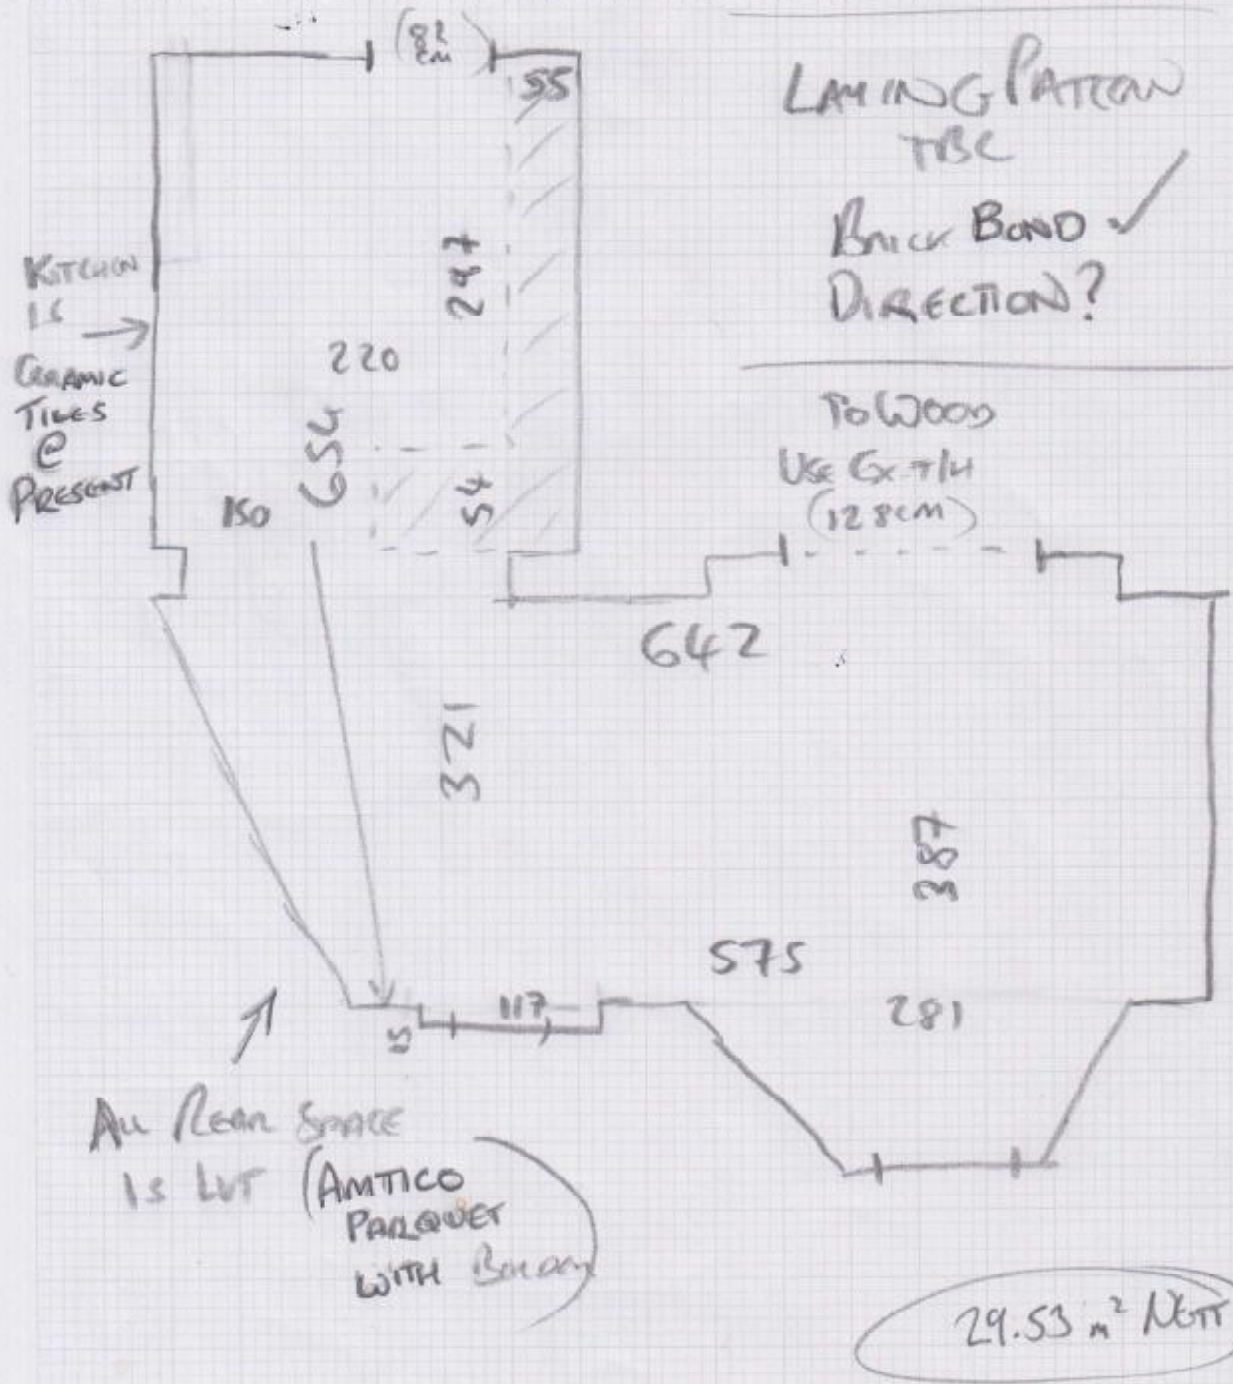 (82
cm)
55
LAYING PATTERN
TBC
BRICK BOND ✓
DIRECTION?
KITCHEN
IS
CERAMIC
TILES
@
PRESENT
297
220
654
150
54
TO WOOD
USE EX T/H
(128cm)
642
321
387
575
281
117
15
ALL REAR SPACE
IS LVT (AMTICO
PARQUET
WITH BORDER)
29.53 m² NETT